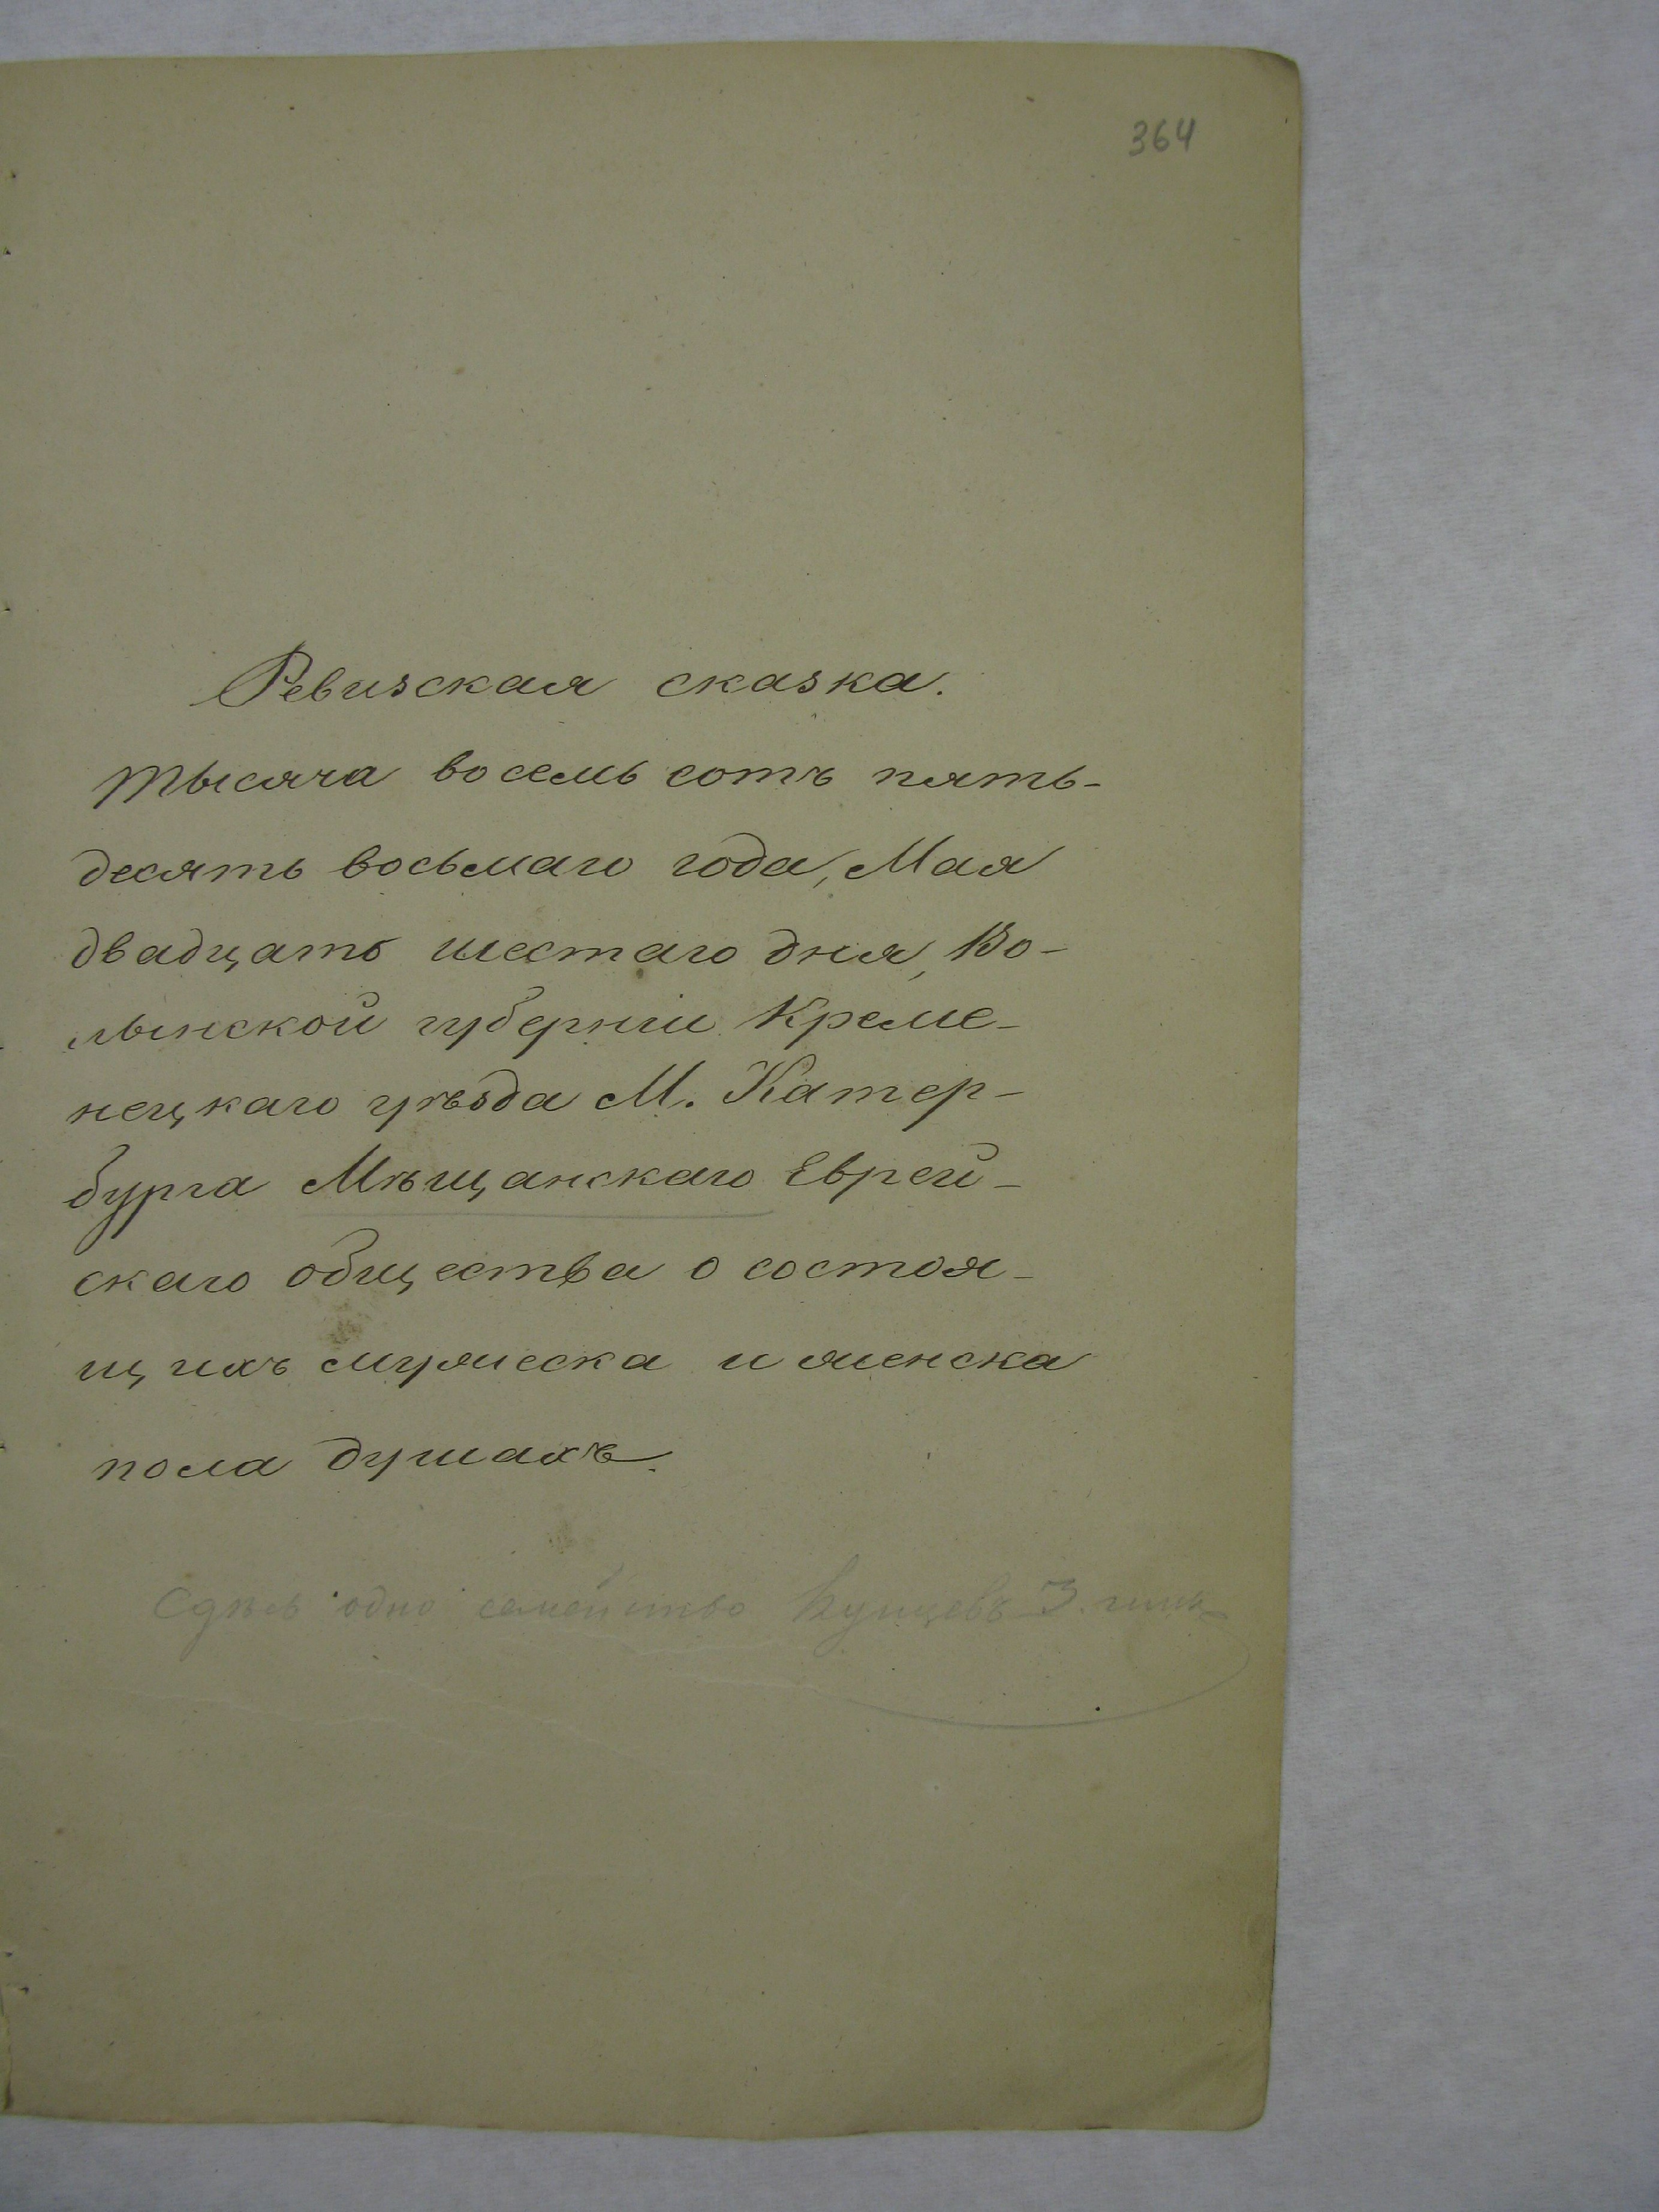 364
Ревизская сказка.
Тысяча восемь сотъ пять-
десять восьмаго года, Мая
двадцать шестаго дня, Во-
лынской губерніи Креме-
нецкаго уѣзда М. Катер-
бурга Мѣщанскаго Еврей-
скаго общества о состоя-
щихъ мужеска и женска
пола душахъ.
Сдѣсь одно семейство Купцевъ 3.